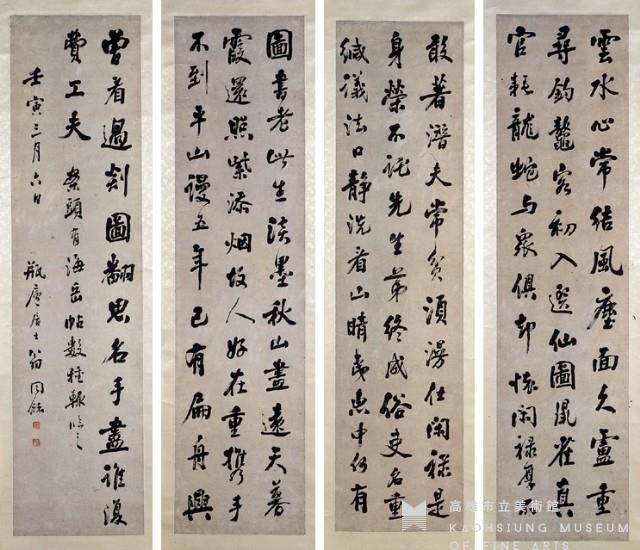 雲水心常結風塵面久盧重
尋釣鼇客初入選仙圖鼠雀真
官耗龍蛇与衆俱却懷閑祿厚不
敢著潛夫常貧須漫仕閑祿是
身榮不託先生第終成俗吏名重
緘議法口靜洗看山晴夷惠中何有
圖書老此生淡墨秋山畫遠天暮
霞還照紫添烟故人好在重攜手
不到平山謾五年已有扁舟興
曾看過剡圖翻思名手盡誰復
費工夫 案頭有海岳帖數種輙臨之
壬寅三月六日 瓶廬居士翁同龢
高雄市立美術館
KAOHSIUNG MUSEUM
OF FINE ARTS